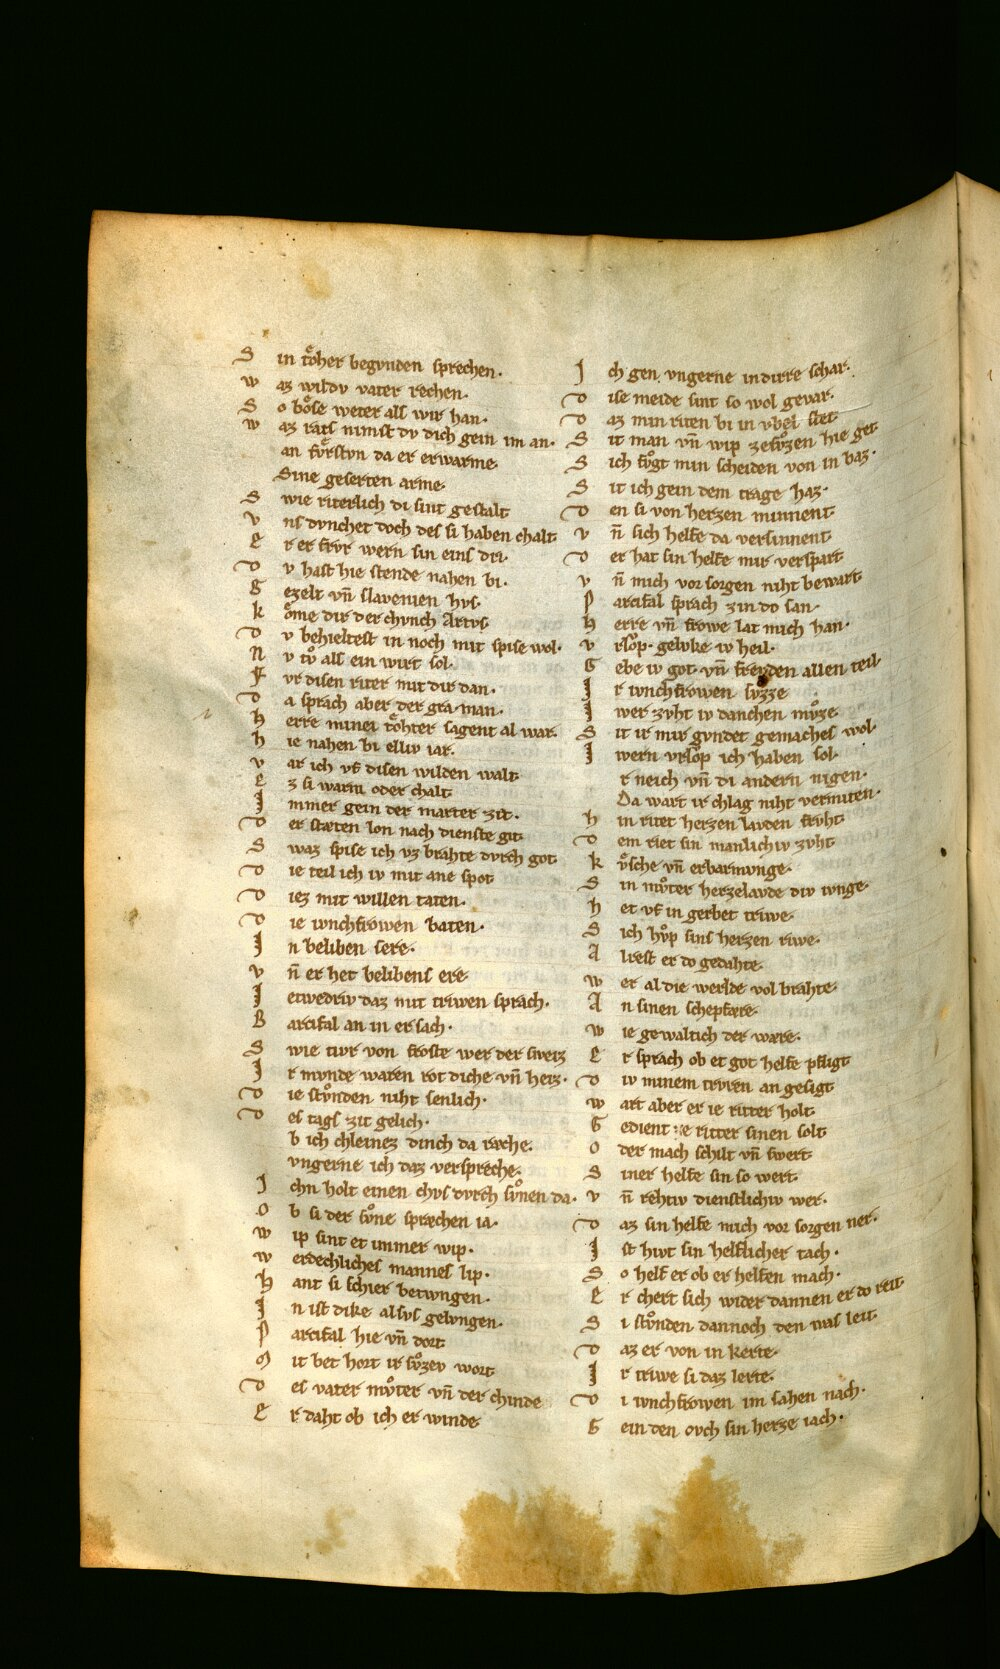 S in toͤhter begvnden sprechen.
w az wildv vater rechen.
S o boͤse weter als wir han.
w az rats nimst dv dich gein im an.
an fvͤrstvn da er erwarme
Sine geserten arme.
S wie riterlich di sint gestalt
v ns dvnchet doch des si haben chalt
e r er frvr wern sin eins dri.
D v hast hie stende nahen bi.
G ezelt vn̄ slavenien hvs.
k oͤme dir der chvnch Artvs
D v behieltest in noch mit spise wol.
N v tvͦ als ein wirt sol.
F vr disen riter mit dir dan.
D a sprach aber der gra man.
h erre minei toͤhter sagent al war.
h ie nahen bi elliv iar.
v ar ich vf disen wilden walt
e z si warm oder chalt
I mmer gein der marter zit.
D er stæten lon nach dienste git
S waz spise ich vz brahte dvrch got
D ie teil ich iv mit ane spot
D iez mit willen taten.
D ie ivnchfrowen baten.
I n beliben sere.
v n̄ er het belibens ere
I etwedriv daz mit triwen sprach.
B arcifal an in ersach.
S wie tivr von froste wer der sweiz
I r mvnde waren rot diche vn̄ heiz.
D ie stvͦnden niht senlich.
D es tags zit gelich.
b ich chleinez dinch da ræche.
vngerne ich daz verspreche.
I chn holt einen chvs dvrch svͦnen da.
O b si der svͦne spræchen ia.
w ip sint et immer wip.
w erdechliches mannes lip.
h ant si schier betwngen.
I n ist dike alsvs gelvngen.
P arcifal hie vn̄ dort
M it bet hort ir svͤzev wort
D es vater mvͦter vn̄ der chinde
e r daht ob ich er winde
I ch gen vngerne in dirre schar.
D ise meide sint so wol gevar.
D az min riten bi in vbel stet
S it man vn̄ wip zefvͦzen hie get
S ich fvͦgt min scheiden von in baz.
S it ich gein dem trage haz.
D en si von herzen minnent
v n̄ sich helfe da versinnent
D er hat sin helfe mir verspart
v n̄ mich vor sorgen niht bewart
P arcifal sprach zin do san.
h erre vn̄ frowe lat mich han.
v rlop. gelvke iv heil.
G ebe iv got. vn̄ frevden allen teil
I r ivnchfrowen svzze
I wer zvht iv danchen mvͤze
S it ir mir gvndet gemaches wol
I wern vrlop ich haben sol.
r neich vn̄ di andern nigen.
Da wart ir chlag niht vermiten.
h in ritet herzenlavden frvht
D em riet sin manlichiv zvht
k vͤsche vn̄ erbarmvnge.
S in mvͦter herzelavde div ivnge.
h et vf in gerbet triwe.
S ich hvͦp sins herzen riwe.
A lrest er do gedahte.
w er al die werlde vol brahte.
A n sinen schepfære.
w ie gewaltich der wære.
e r sprach ob et got helfe pfligt
D iv minem trvren an gesigt
w art aber er ie ritter holt
G edient ie ritter sinen solt
O der mach schilt vn̄ swert
S iner helfe sin so wert.
v n̄ rehtiv dienstlichiv wer.
D az sin helfe mich vor sorgen ner.
I st hivt sin helflicher tach.
S o helf er ob er helfen mach.
e r chert sich wider dannen er do reit
S i stvͦnden dannoch den was leit
D az er von in kerte.
I r triwe si daz lerte.
D i ivnchfrowen im sahen nach.
G ein den ovch sin herze iach.